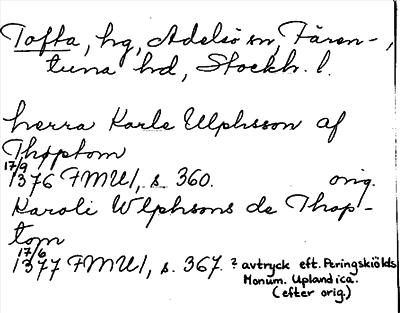 Tofta, hg, Adelsö sn, Fären-,
tuna hd, Stockh. l.
herra Karle Ulphsson af
Thoptom
17/9
1376 FMU1, s. 360. orig.
Karoli Wlphsons de Thop-
tom
17/6
1377 FMU1, s. 367. ? avtryck eft. Peringskiölds
Monum. Uplandica.
(efter orig.)